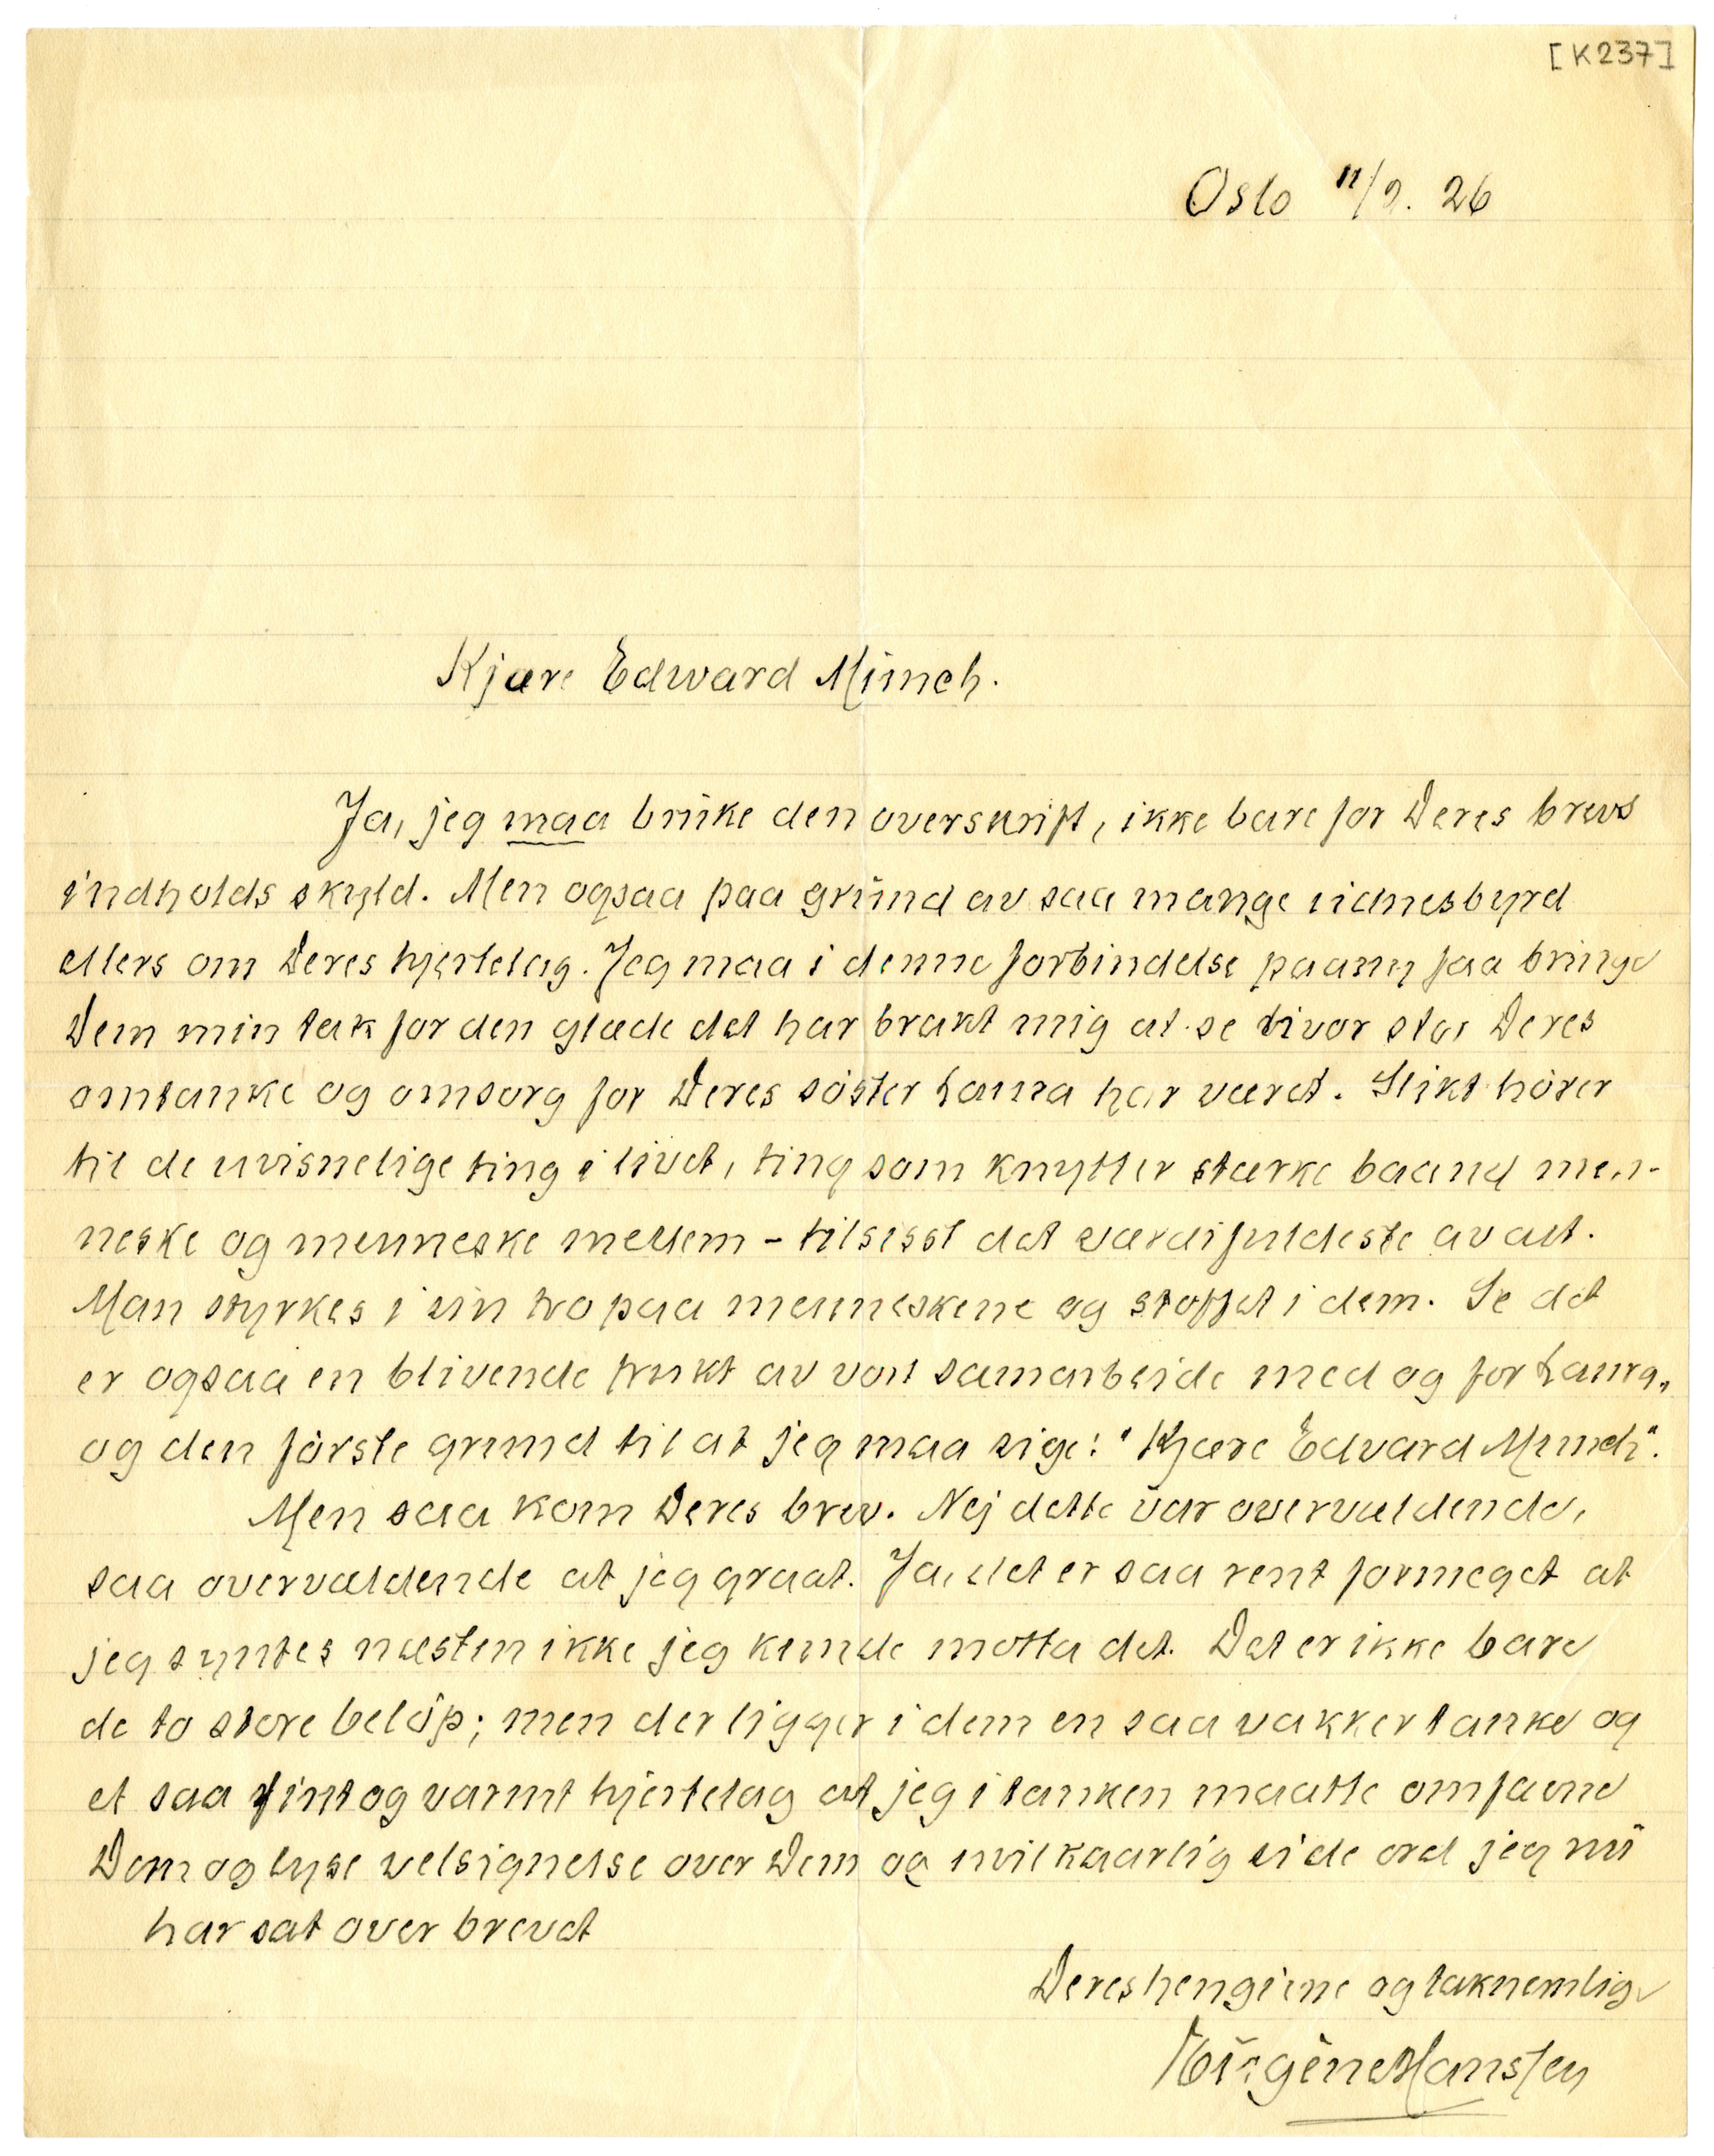 [K237]
Oslo 11/9. 26
Kjære Edward Munch.
Ja, jeg maa bruke den overskrift, ikke bare for Deres brevs
indholds skyld. Men ogsaa paa grund av saa mange vidnesbyrd
ellers om Deres hjertelag. Jeg maa i denne forbindelse paany faa bringe
Dem min tak for den glæde det har brakt mig at se hvor stor Deres
omtanke og omsorg for Deres søster Laura har været. Slikt hører
til de uvisnelige ting i livet, ting som knytter stærke baand men-
neske og menneske mellem – tilsisst det værdifuldeste av alt.
Man styrkes i sin tro paa menneskene og stoffet i dem. Se det
er ogsaa en blivende frukt av vort samarbeide med og for Laura,
og den første grund til at jeg maa sige: "Kjære Edvard Munch".
Men saa kom Deres brev. Nej dette var overvældende,
saa overvældende at jeg graat. Ja, det er saa rent formeget at
jeg syntes næsten ikke jeg kunde motta det. Det er ikke bare
de to store beløp; men der ligger i dem en saa vakker tanke og
et saa fint og varmt hjertelag at jeg i tanken maatte omfavne
Dem og lyse velsignelse over Dem og uvilkaarlig si de ord jeg nu
har sat over brevet
Deres hengivne og taknemlige
Eugène Hanssen